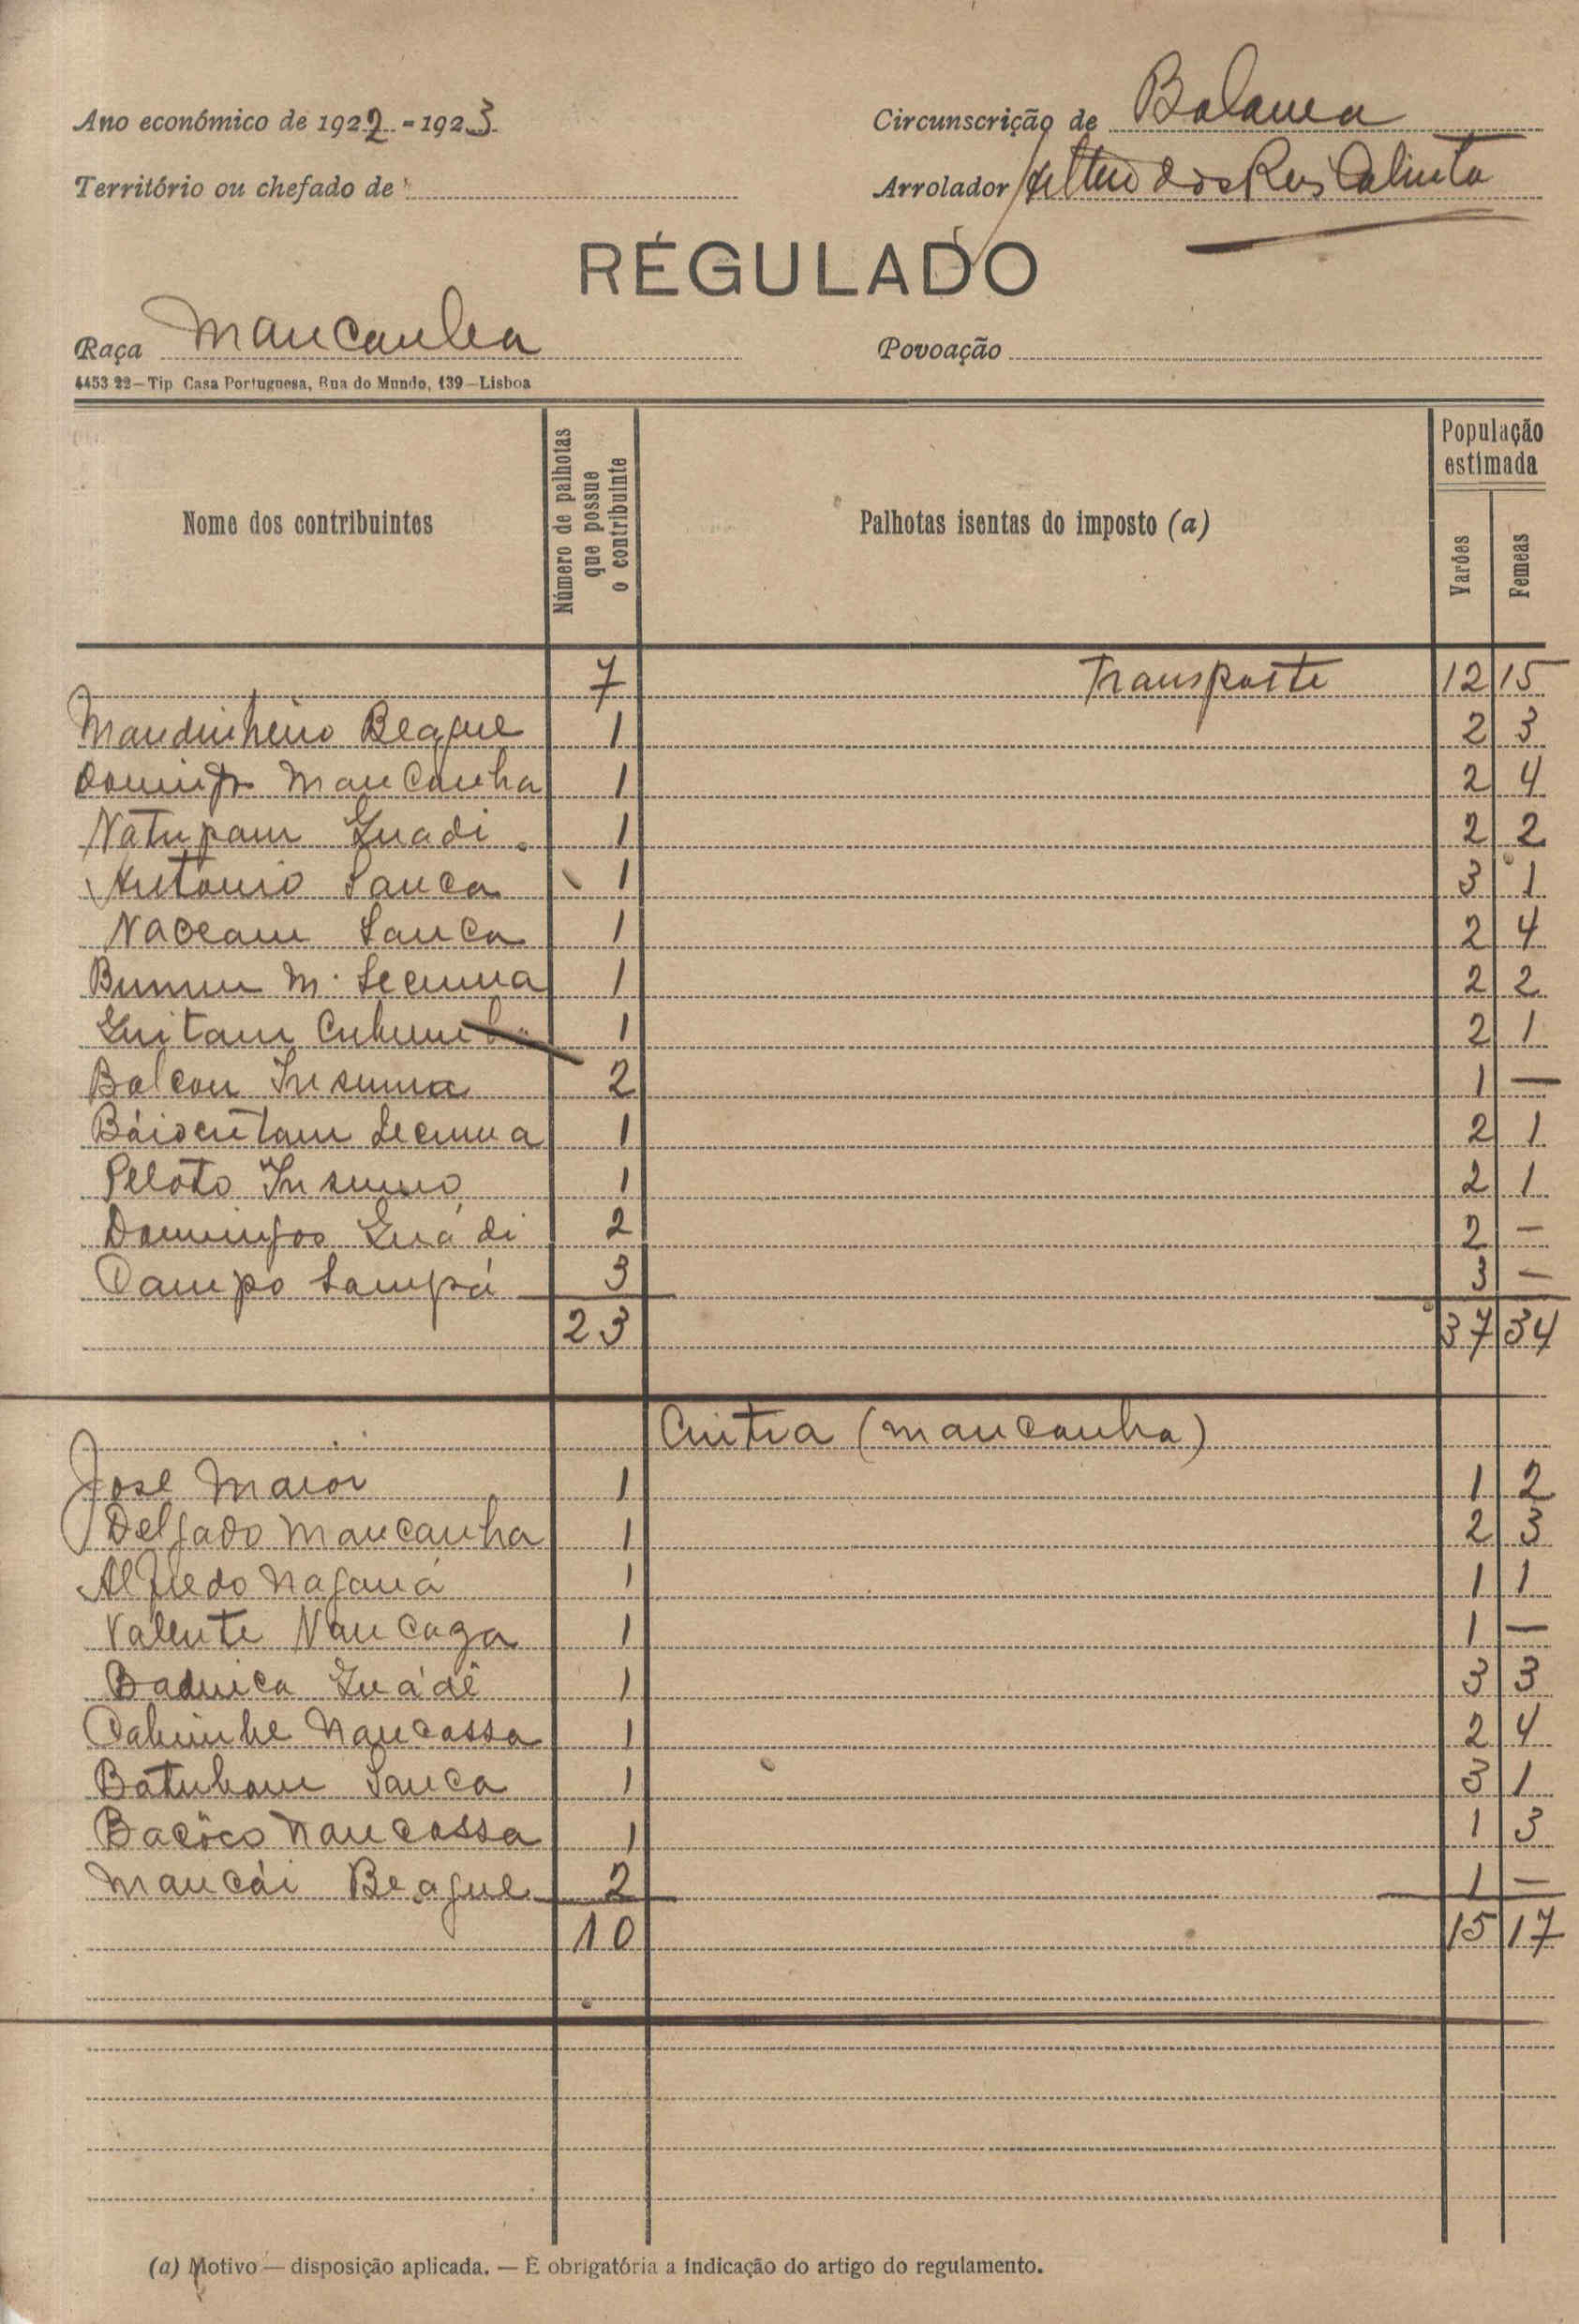 Ano económico de 1922-1923
Circunscrição de Bolama
Território ou chefado de
Arrolador dos Reis
RÉGULADO
Raça Mancanha
Povoação
4453 22—Tip Casa Portuguesa, Rua do Mundo, 139—Lisboa
Nome dos contribuintes
Número de palhotas que possue o contribuinte
Palhotas isentas do imposto (a)
População estimada
Varões
Femeas
7 Transporte 12 15
Mandinheiro Beague 1 2 3
Domingos Mancanha 1 2 4
Natupam Guadi 1 2 2
António Sanca 1 3 1
Naceam Sanca 1 2 4
M. Secunna 1 2 2
Guitam 1 2 1
Balcau Insuma 2 1 —
Secunna 1 2 1
Peloto Insumo 1 2 1
Domingos Guádi 2 2 —
Campo Sampá 3 3 —
23 37 34
Cuitia (Mancanha)
José Maior 1 1 2
Delgado Mancanha 1 2 3
Alfredo Naganá 1 1 1
Valente Nancaga 1 1 —
Baduica Guádê 1 3 3
Cahuinhe Nancassa 1 2 4
Batuham Sanca 1 3 1
Bacôco Nancassa 1 1 3
Mancái Beague 2 1 —
10 15 17
(a) Motivo — disposição aplicada. — É obrigatória a indicação do artigo do regulamento.